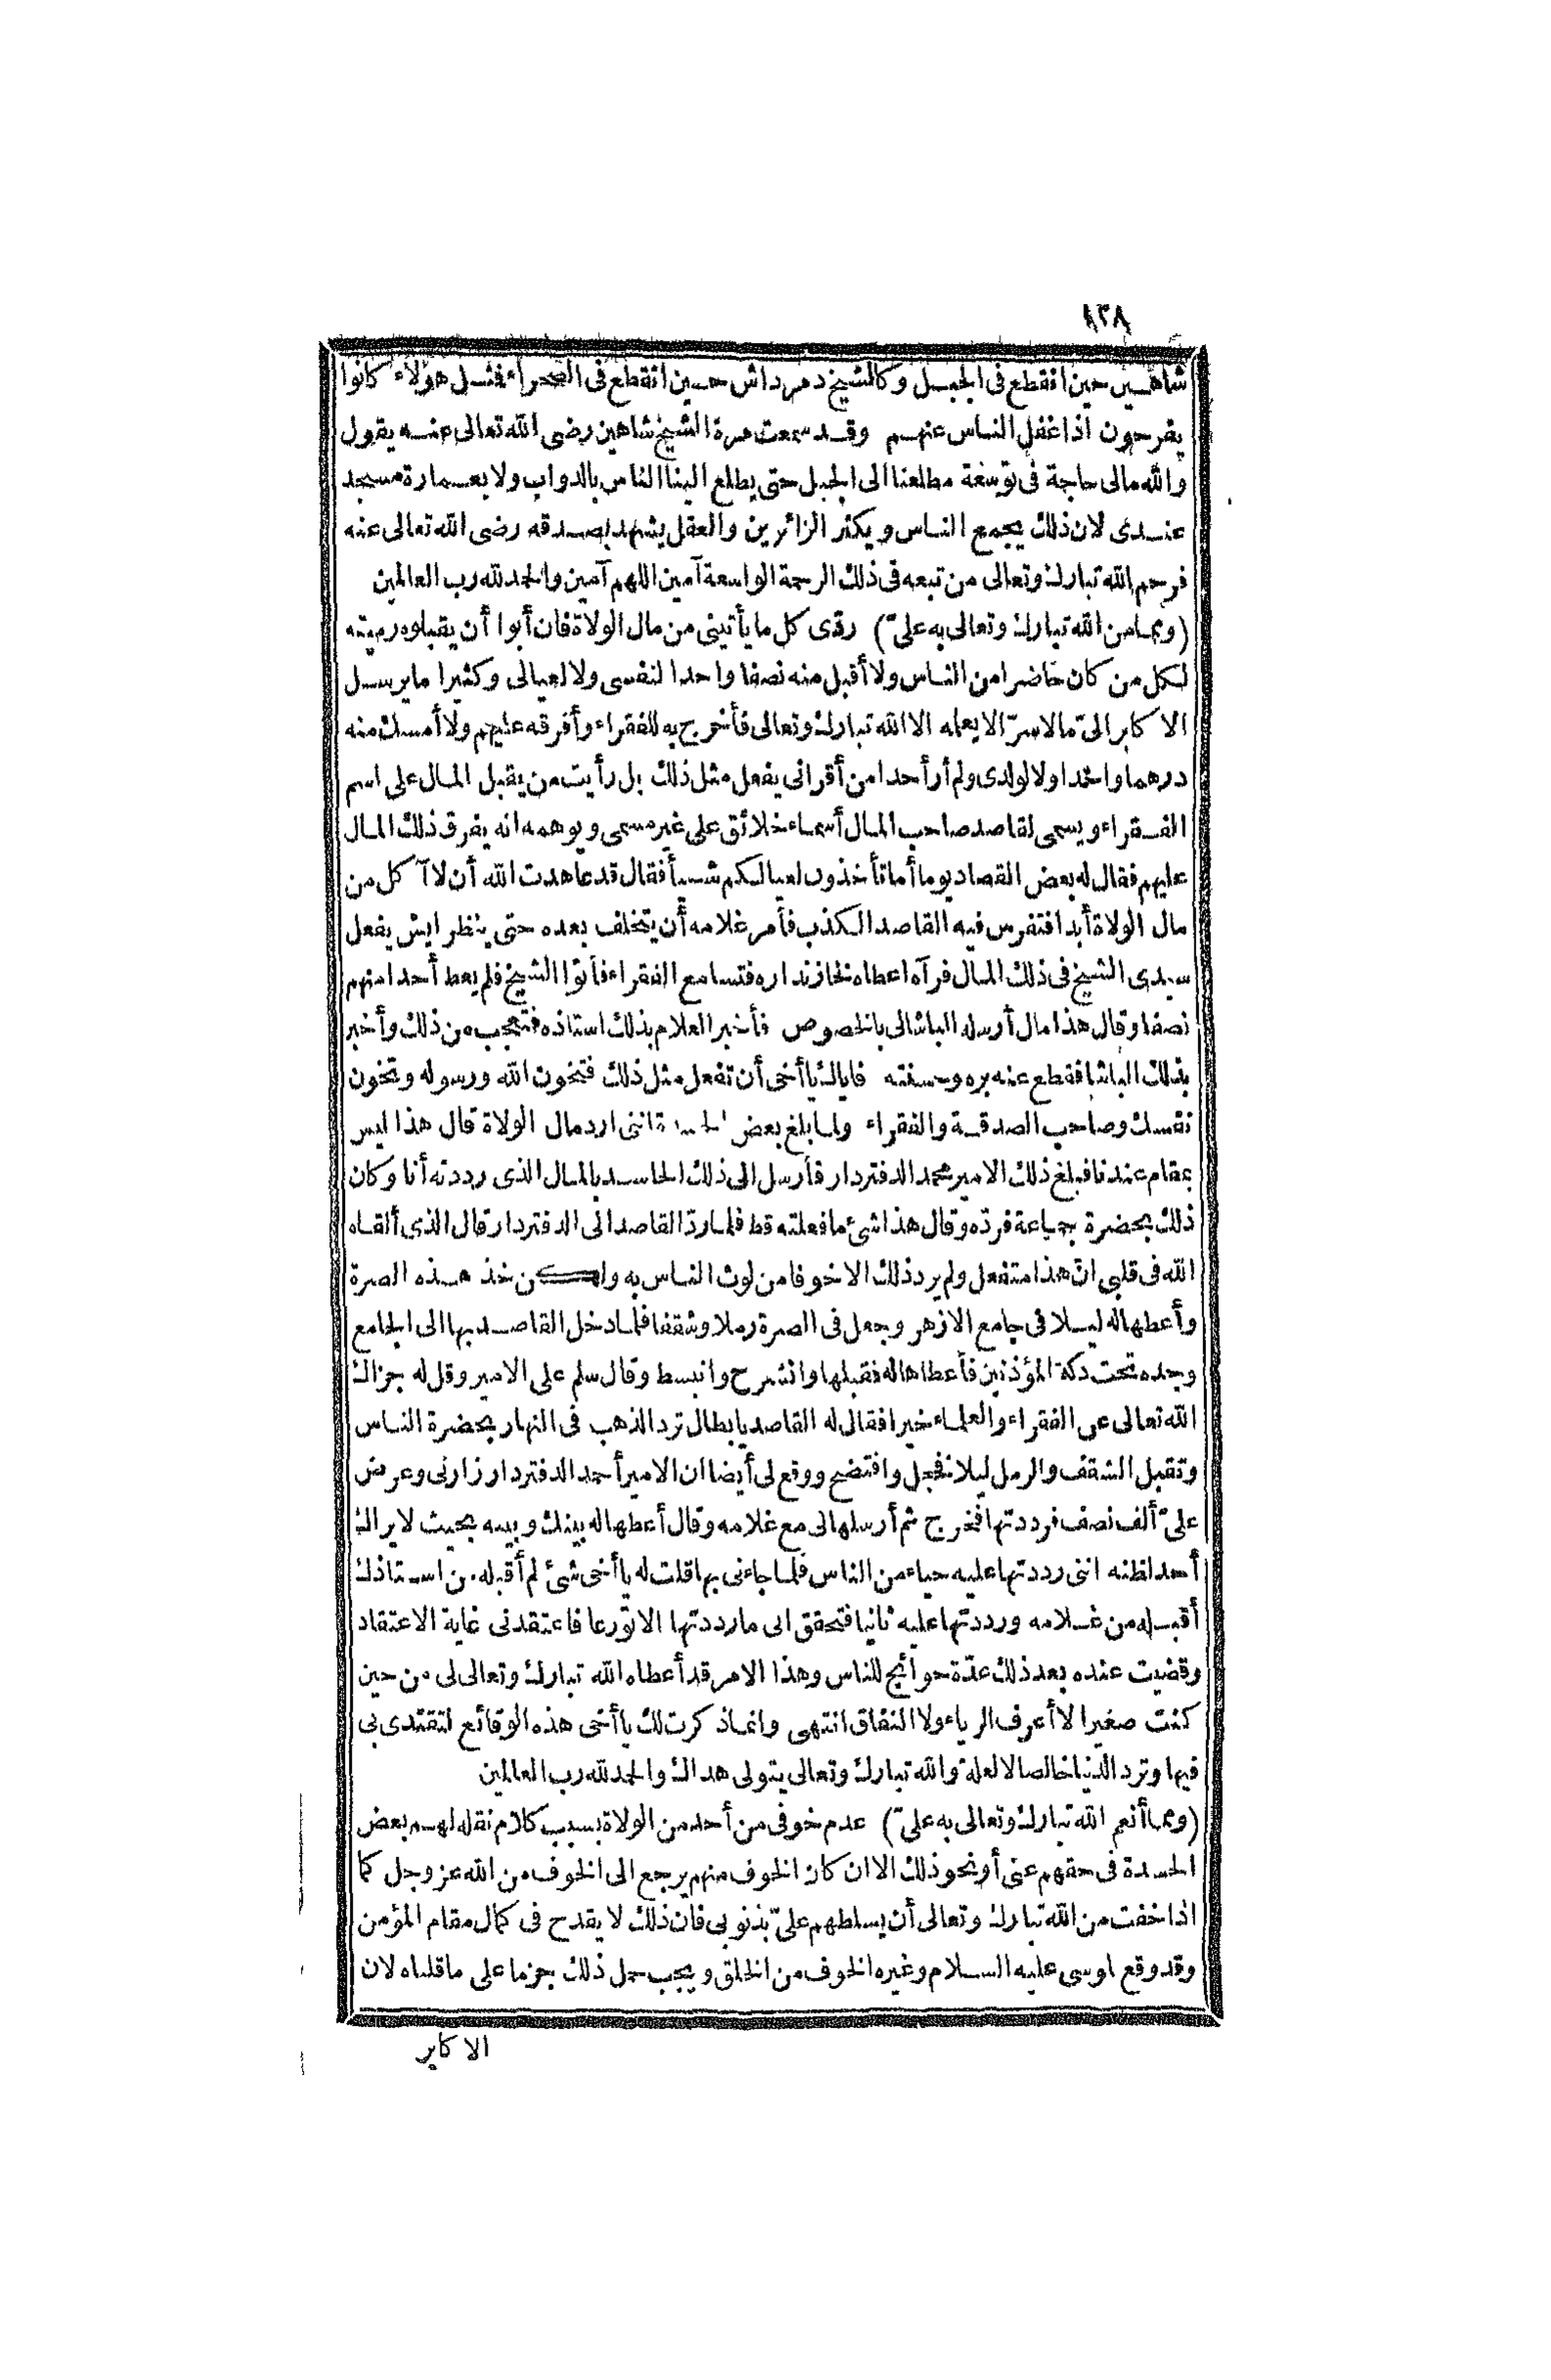 ١٣٨
شاهين حين انقطع فى الجبل وكالشيخ دمرداش حين انقطع فى الصحراء فمثل هؤلاء كانوا
يفرحون اذا غفل الناس عنهم وقد سمعت مرة الشيخ شاهين رضى الله تعالى عنه يقول
والله مالى حاجة فى توسعة مطلعنا الى الجبل حتى يطلع الينا الناس بالدواب ولا بعمارة مسجد
عندى لان ذلك يجمع الناس ويكثر الزائرين والعقل يشهد بصدقه رضى الله تعالى عنه
فرحم الله تبارك وتعالى من تبعه فى ذلك الرحمة الواسعة آمين اللهم آمين والحمد لله رب العالمين
(ومما من الله تبارك وتعالى به علىّ) ردّى كل ما يأتينى من مال الولاة فان أبوا أن يقبلوه رميته
لكل من كان حاضرا من الناس ولا أقبل منه نصفا واحدا لنفسى ولا لعيالى وكثيرا ما يرسل
الاكابر الىّ مالا سرّا لا يعلمه الا الله تبارك وتعالى فأخرج به للفقراء وأفرقه عليهم ولا أمسك منه
درهما واحدا ولا لولدى ولم أر أحدا من أقرانى يفعل مثل ذلك بل رأيت من يقبل المال على اسم
الفقراء ويسمى لقاصد صاحب المال أسماء خلائق على غير مسمى ويوهمه انه يفرق ذلك المال
عليهم فقال له بعض القصاد يوما أما تأخذون لعيالكم شيأ فقال قد عاهدت الله أن لا آكل من
مال الولاة أبدا فتفرس فيه القاصد الكذب فأمر غلامه أن يتخلف بعده حتى ينظر ايش يفعل
سيدى الشيخ فى ذلك المال فرآه اعطاه لخازنداره فتسامع الفقراء فأتوا الشيخ فلم يعط أحدا منهم
نصفا وقال هذا مال أرسله الباشا لى بالخصوص فأخبر الغلام بذلك استاذه فتعجب من ذلك وأخبر
بذلك الباشا فقطع عنه بره وحسنته فاياك يا أخى أن تفعل مثل ذلك فتخون الله ورسوله وتخون
نفسك وصاحب الصدقة والفقراء ولما بلغ بعض الحسدة اننى ارد مال الولاة قال هذا ليس
بمقام عندنا فبلغ ذلك الامير محمد الدفتردار فأرسل الى ذلك الحاسد بالمال الذى رددته أنا وكان
ذلك بحضرة جماعة فردّه وقال هذا شئ ما فعلته قط فلما ردّ القاصد الى الدفتردار قال الذى ألقاه
الله فى قلبى انّ هذا متفعل ولم يرد ذلك الا خوفا من لوث الناس به ولكن خذ هذه الصرة
وأعطها له ليلا فى جامع الازهر وجعل فى الصرة رملا وشقفا فلما دخل القاصد بها الى الجامع
وجده تحت دكة المؤذنين فأعطاها له فقبلها وانشرح وانبسط وقال سلم على الامير وقل له جزاك
الله تعالى عن الفقراء والعلماء خيرا فقال له القاصد يا بطال ترد الذهب فى النهار بحضرة الناس
وتقبل الشقف والرمل ليلا فخجل وافتضح ووقع لى أيضا ان الامير أحمد الدفتردار زارنى وعرض
علىّ ألف نصف فرددتها فخرج ثم أرسلها لى مع غلامه وقال أعطها له بينك وبينه بحيث لا يراك
أحد لظنه اننى رددتها عليه حياء من الناس فلما جاءنى بها قلت له يا أخى شئ لم أقبله من استاذك
أقبله من غلامه ورددتها عليه ثانيا فتحقق انى ما رددتها الا تورعا فاعتقدنى غاية الاعتقاد
وقضيت عنده بعد ذلك عدّة حوائج للناس وهذا الامر قد أعطاه الله تبارك وتعالى لى من حين
كنت صغيرا لا أعرف الرياء ولا النفاق انتهى وانما ذكرت لك يا أخى هذه الوقائع لتقتدى بى
فيها وترد الدنيا خالصا لا لعلة والله تبارك وتعالى يتولى هداك والحمد لله رب العالمين
(ومما أنعم الله تبارك وتعالى به علىّ) عدم خوفى من أحد من الولاة بسبب كلام نقله لهم بعض
الحسدة فى حقهم عنى أو نحو ذلك الا ان كان الخوف منهم يرجع الى الخوف من الله عز وجل كما
اذا خفت من الله تبارك وتعالى أن يسلطهم علىّ بذنوبى فان ذلك لا يقدح فى كمال مقام المؤمن
وقد وقع لموسى عليه السلام وغيره الخوف من الخلق ويجب حمل ذلك جزما على ما قلناه لان
الاكابر